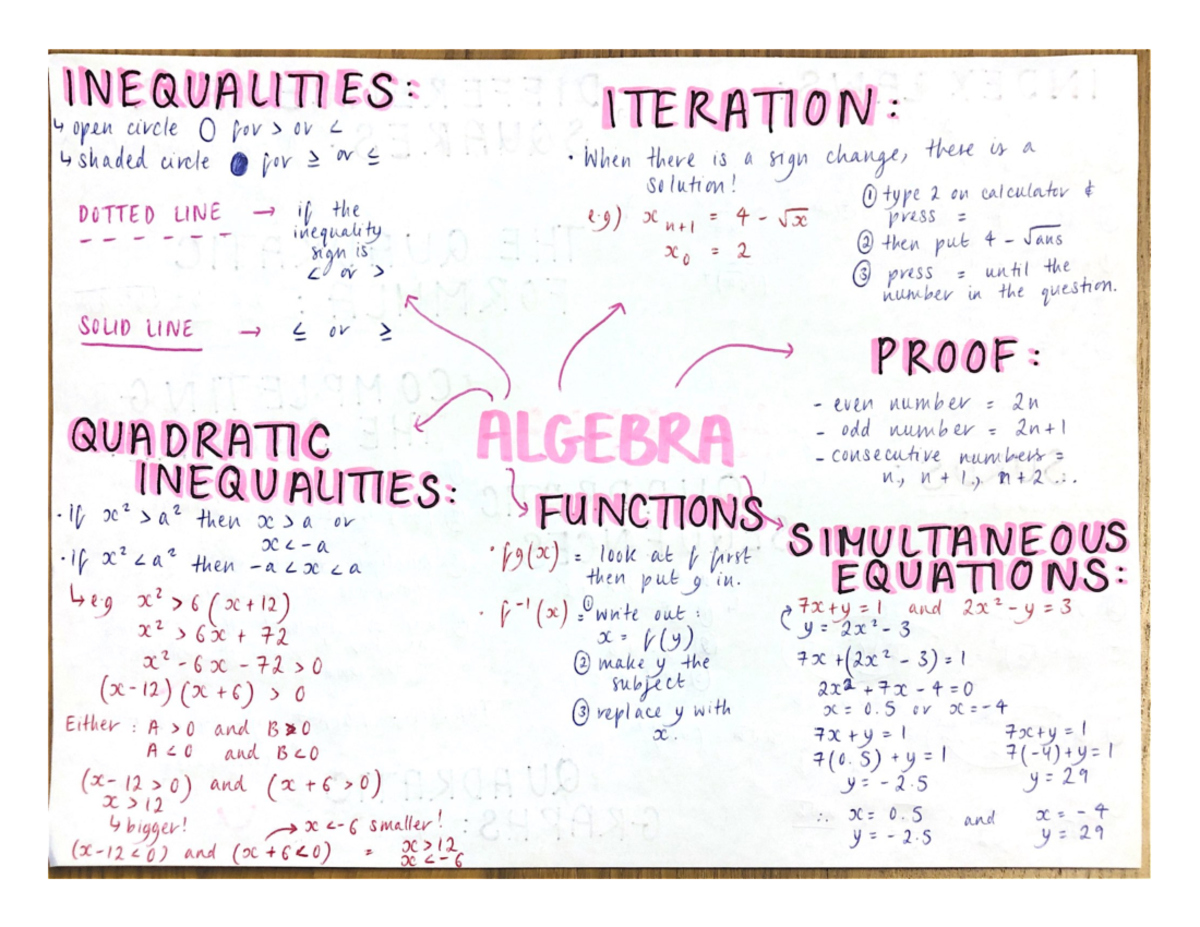 INEQUALITIES:
↳ open circle O for > or <
↳ shaded circle ● for ≥ or ≤
DOTTED LINE → if the
inequality
sign is
< or >
SOLID LINE → ≤ or ≥
ITERATION:
· When there is a sign change, there is a
solution!
e.g) x n+1 = 4 - √x
x₀ = 2
① type 2 on calculator &
press =
② then put 4 - √ans
③ press = until the
number in the question.
PROOF:
- even number = 2n
- odd number = 2n+1
- consecutive numbers =
n, n+1, n+2 ...
ALGEBRA
QUADRATIC
INEQUALITIES:
· if x² > a² then x > a or
x < -a
· if x² < a² then -a < x < a
↳ e.g x² > 6(x+12)
x² > 6x + 72
x² - 6x - 72 > 0
(x-12)(x+6) > 0
Either : A > 0 and B > 0
A < 0 and B < 0
(x-12 > 0) and (x+6 > 0)
x > 12
↳ bigger!
→ x < -6 smaller!
(x-12 < 0) and (x+6 < 0) = x > 12
x < -6
FUNCTIONS
· fg(x) = look at f first
then put g in.
· f⁻¹(x) = ① write out :
x = f(y)
② make y the
subject
③ replace y with
x.
SIMULTANEOUS
EQUATIONS:
7x+y = 1 and 2x² - y = 3
y = 2x² - 3
7x + (2x² - 3) = 1
2x² + 7x - 4 = 0
x = 0.5 or x = -4
7x + y = 1
7(0.5) + y = 1
y = -2.5
7x+y = 1
7(-4)+y = 1
y = 29
∴ x = 0.5 and x = -4
y = -2.5 y = 29